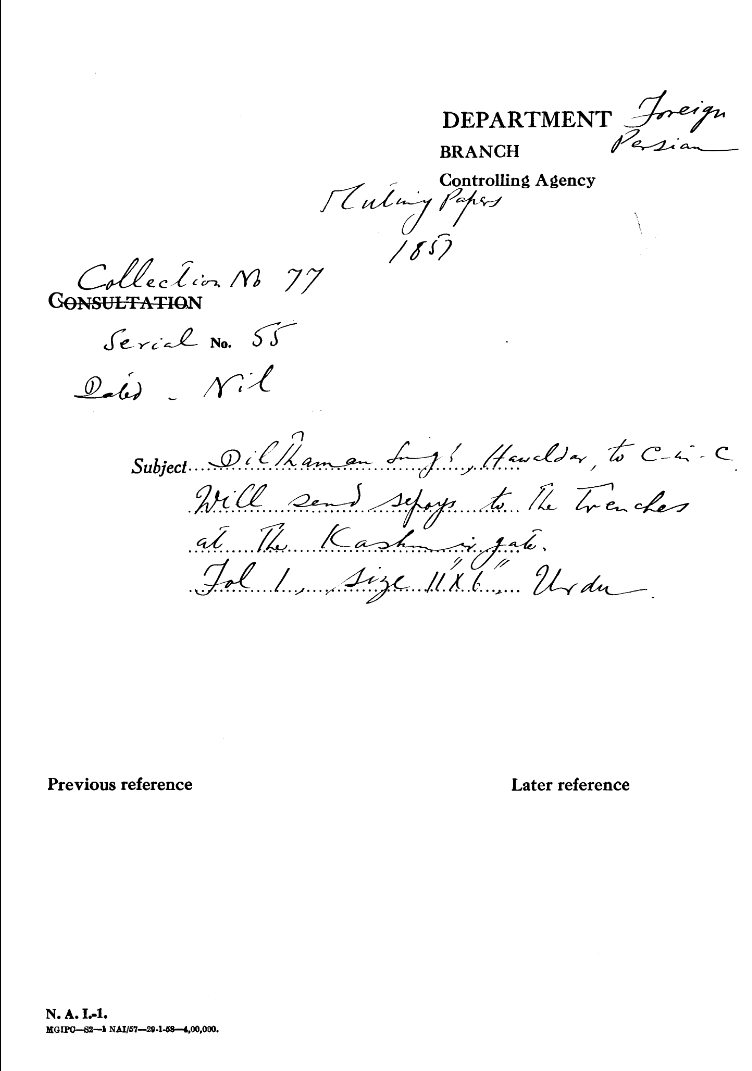 DEPARTMENT Foreign
BRANCH Persian
Controlling Agency
Mutiny Papers
1857
Collection No 77
CONSULTATION
Serial No. 55
Dated - Nil
Subject Dil Thaman Singh, Hawaldar, to C-in-C
Will send sepoys to the trenches
at the Kashmir gate.
Fol 1, size 11" X 6", Urdu
Previous reference Later reference
N. A. I.-1.
MGIPC—S2—1 NAI/57—29-1-58—4,00,000.